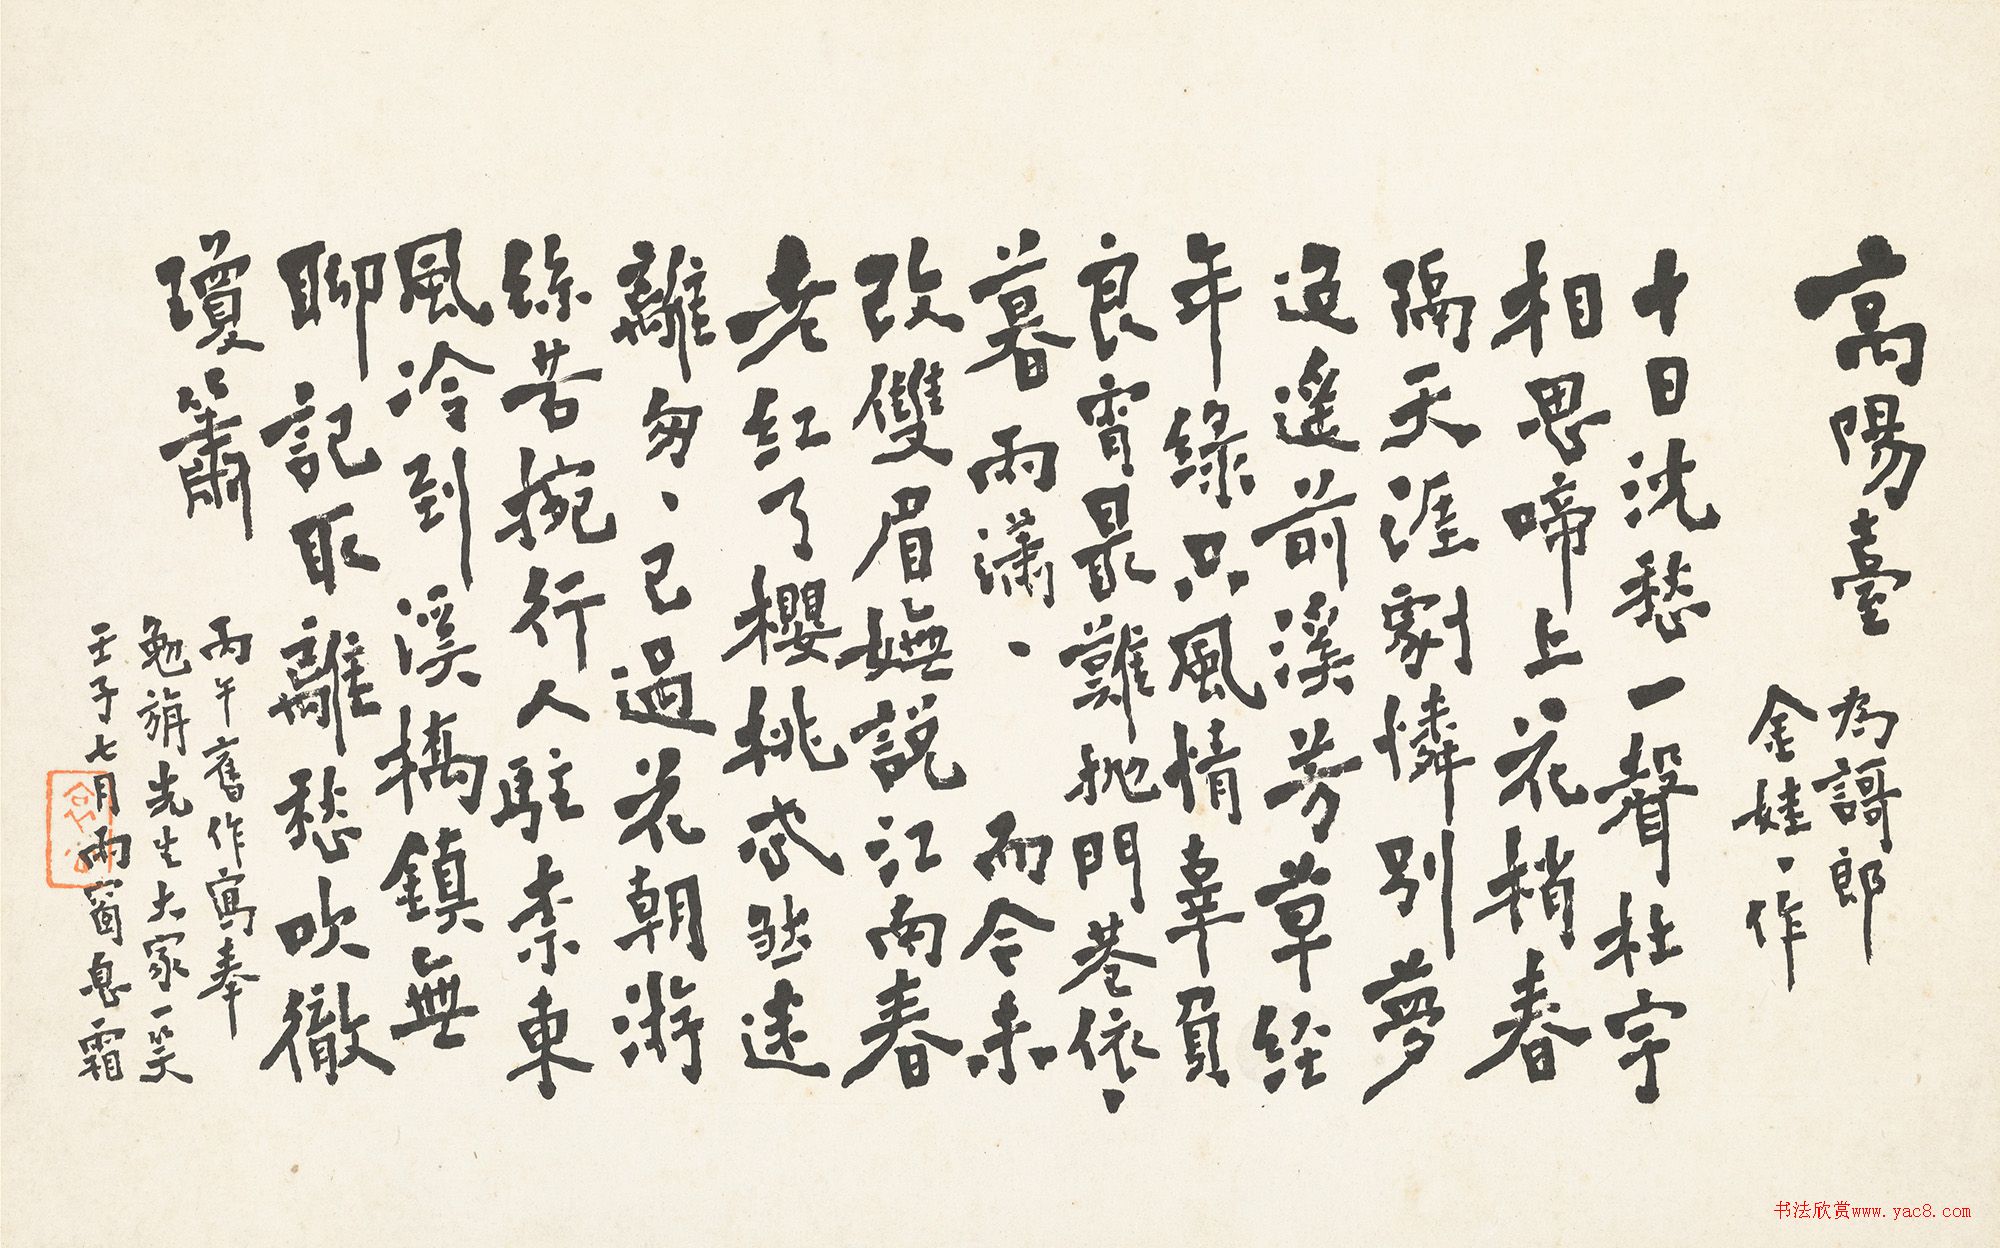 高陽臺
為謌郎
金娃、作
十日沈愁一聲杜宇
相思啼上花梢春
隔天涯劇憐別夢
迢遙前溪芳草經
年綠只風情辜負
良宵最難抛門巷依、
暮雨瀟、而今未
改雙眉嫵說江南春
老紅了櫻桃忒煞迷
離匆、已過花朝游
絲苦挽行人駐柰東
風冷到溪橋鎮無
聊記取離愁吹徹
瓊簫
丙午舊作寫奉
勉旃先生大家一笑
壬子七月雨窗息霜
书法欣赏www.yac8.com